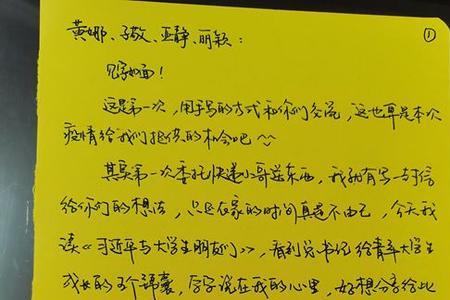 黄娜、子敬、亚静、丽颖：
①
见字如面！
这是第一次，用手写的方式和你们交流，这也算是本次
疫情给我们提供的机会吧～
其实第一次委托快递小哥送东西，我就有写一封信
给你们的想法，只是在家的时间真是不由己，今天我
读《习近平与大学生朋友们》，看到总书记给青年大学生
成长的五个锦囊，字字说在我的心里，好想分享给此